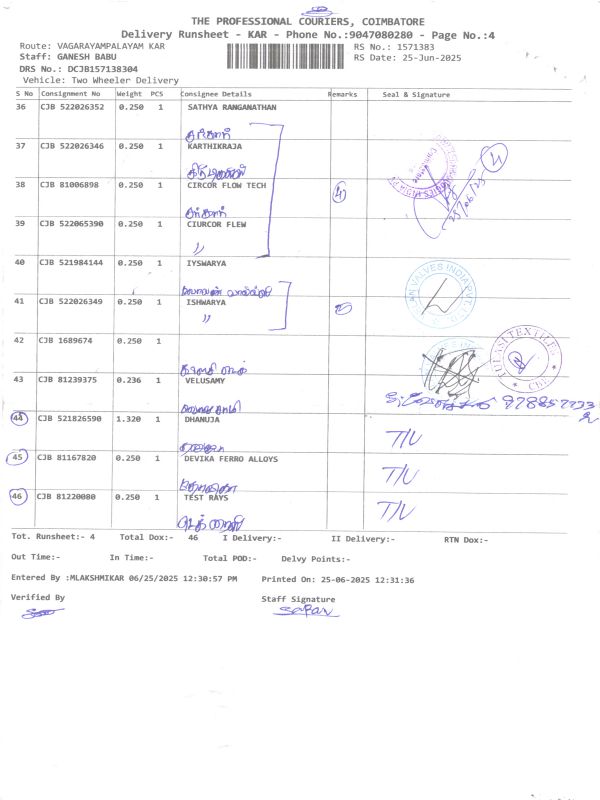 THE PROFESSIONAL COURIERS, COIMBATORE
Delivery Runsheet - KAR - Phone No.:9047080280 - Page No.:4
Route: VAGARAYAMPALAYAM KAR
RS No.: 1571383
Staff: GANESH BABU
RS Date: 25-Jun-2025
DRS No.: DCJB157138304
Vehicle: Two Wheeler Delivery
S No Consignment No Weight PCS Consignee Details Remarks Seal & Signature
36 CJB 522026352 0.250 1 SATHYA RANGANATHAN
37 CJB 522026346 0.250 1 KARTHIKRAJA
38 CJB 81006898 0.250 1 CIRCOR FLOW TECH 4
25/06/25
39 CJB 522065390 0.250 1 CIURCOR FLEW
〃
40 CJB 521984144 0.250 1 IYSWARYA
41 CJB 522026349 0.250 1 ISHWARYA
〃
42 CJB 1689674 0.250 1
TULASI TEXTILES
CBE
43 CJB 81239375 0.236 1 VELUSAMY
44 CJB 521826590 1.320 1 DHANUJA T/V
45 CJB 81167820 0.250 1 DEVIKA FERRO ALLOYS T/V
46 CJB 81220080 0.250 1 TEST RAYS T/V
Tot. Runsheet:- 4 Total Dox:- 46 I Delivery:- II Delivery:- RTN Dox:-
Out Time:- In Time:- Total POD:- Delvy Points:-
Entered By :MLAKSHMIKAR 06/25/2025 12:30:57 PM Printed On: 25-06-2025 12:31:36
Verified By Staff Signature